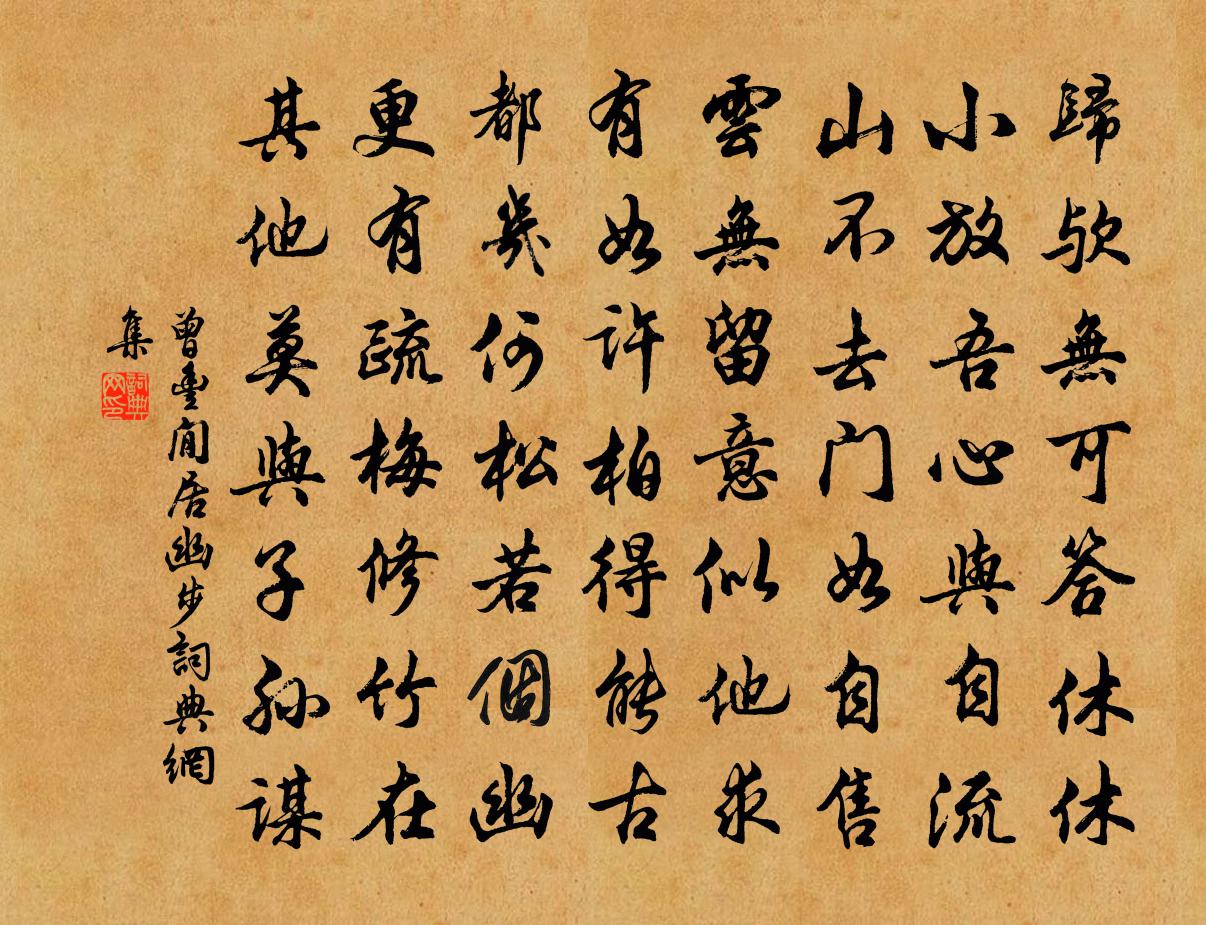 歸歟無可答休休
小放吾心與自流
山不去门如自售
雲無留意似他求
有如许柏得能古
都幾何松若個幽
更有疏梅修竹在
其他莫與子孫謀
曾豐閒居幽步詞典網
集
詞典
网印